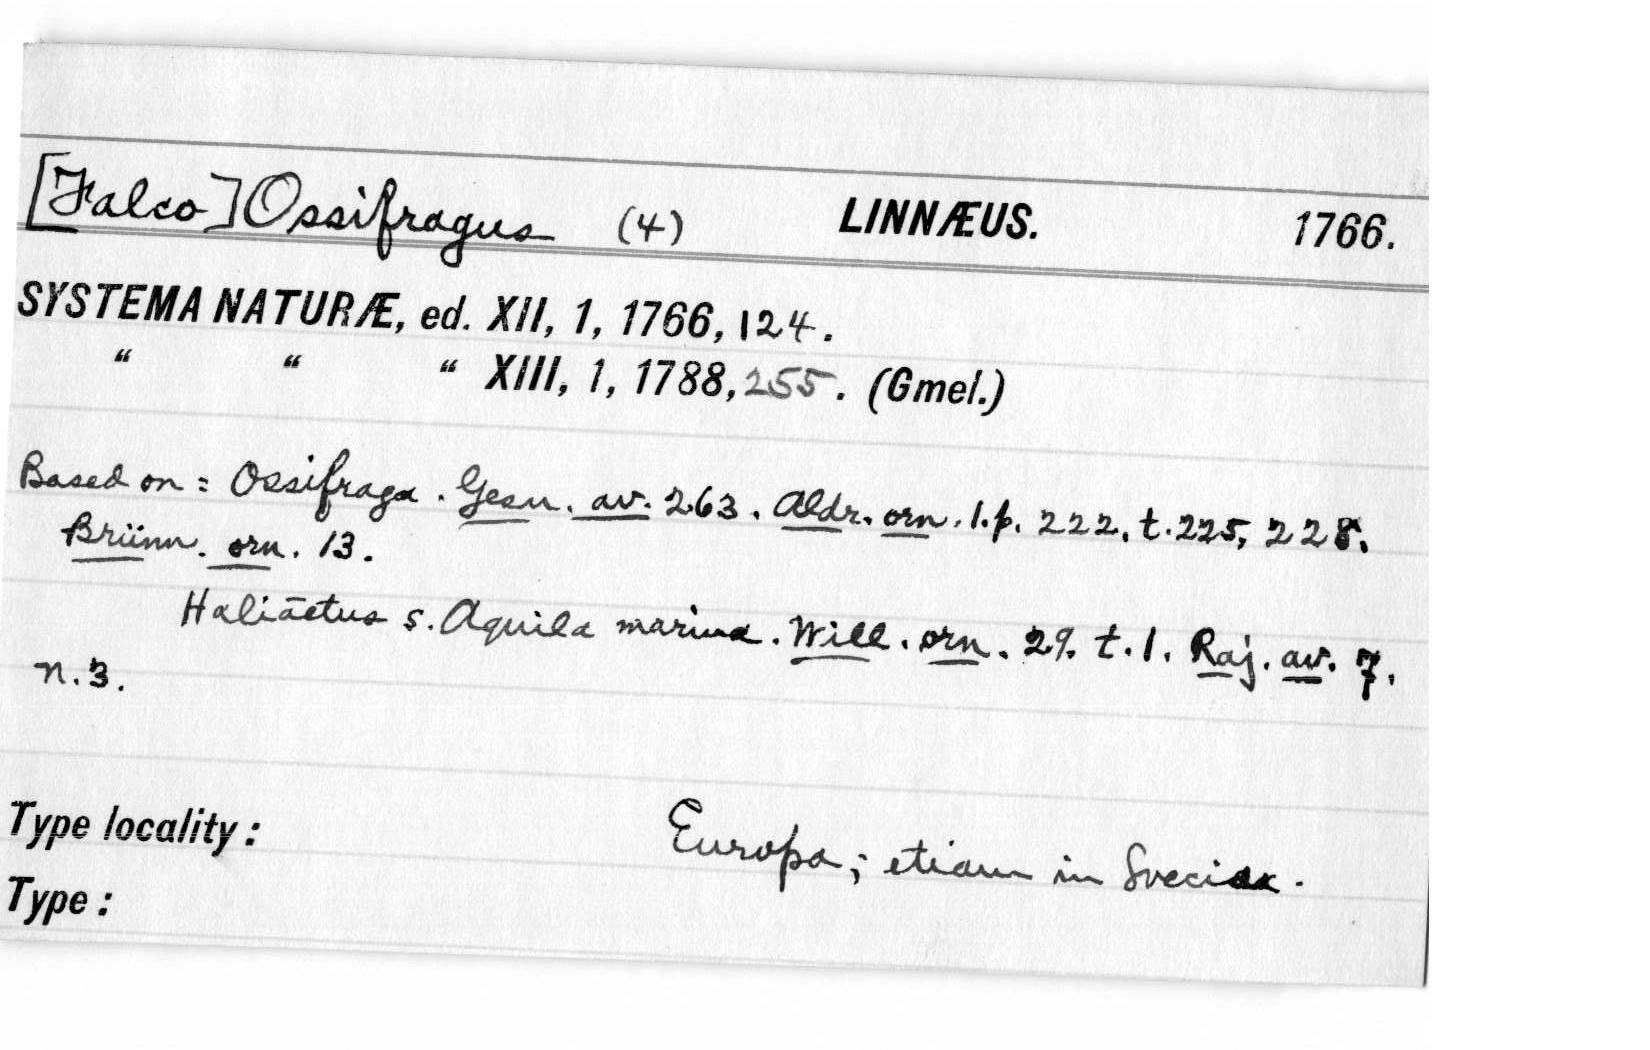 [Falco] Ossifragus (4) LINNÆUS. 1766.
SYSTEMA NATURÆ, ed. XII, 1, 1766, 124.
" " " XIII, 1, 1788, 255. (Gmel.)
Based on: Ossifraga. Gesn. av. 263. Aldr. orn. 1. p. 222. t. 225, 228.
Brünn. orn. 13.
Haliäetus s. Aquila marina. Will. orn. 29. t. 1. Raj. av. 7.
n. 3.
Type locality: Europa; etiam in Svecia.
Type: